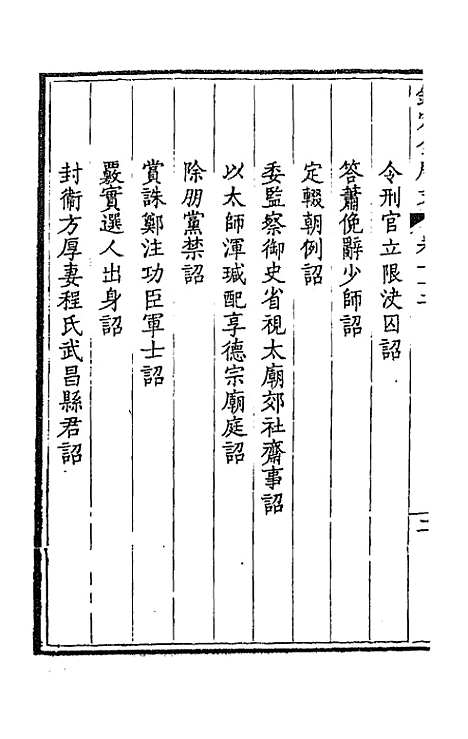 令刑官立限決囚詔
答蕭俛辭少師詔
定輟朝例詔
委監察御史省視太廟郊社齋事詔
以太師渾瑊配享德宗廟庭詔
除朋黨禁詔
賞誅鄭注功臣軍士詔
覈實選人出身詔
封衛方厚妻程氏武昌縣君詔